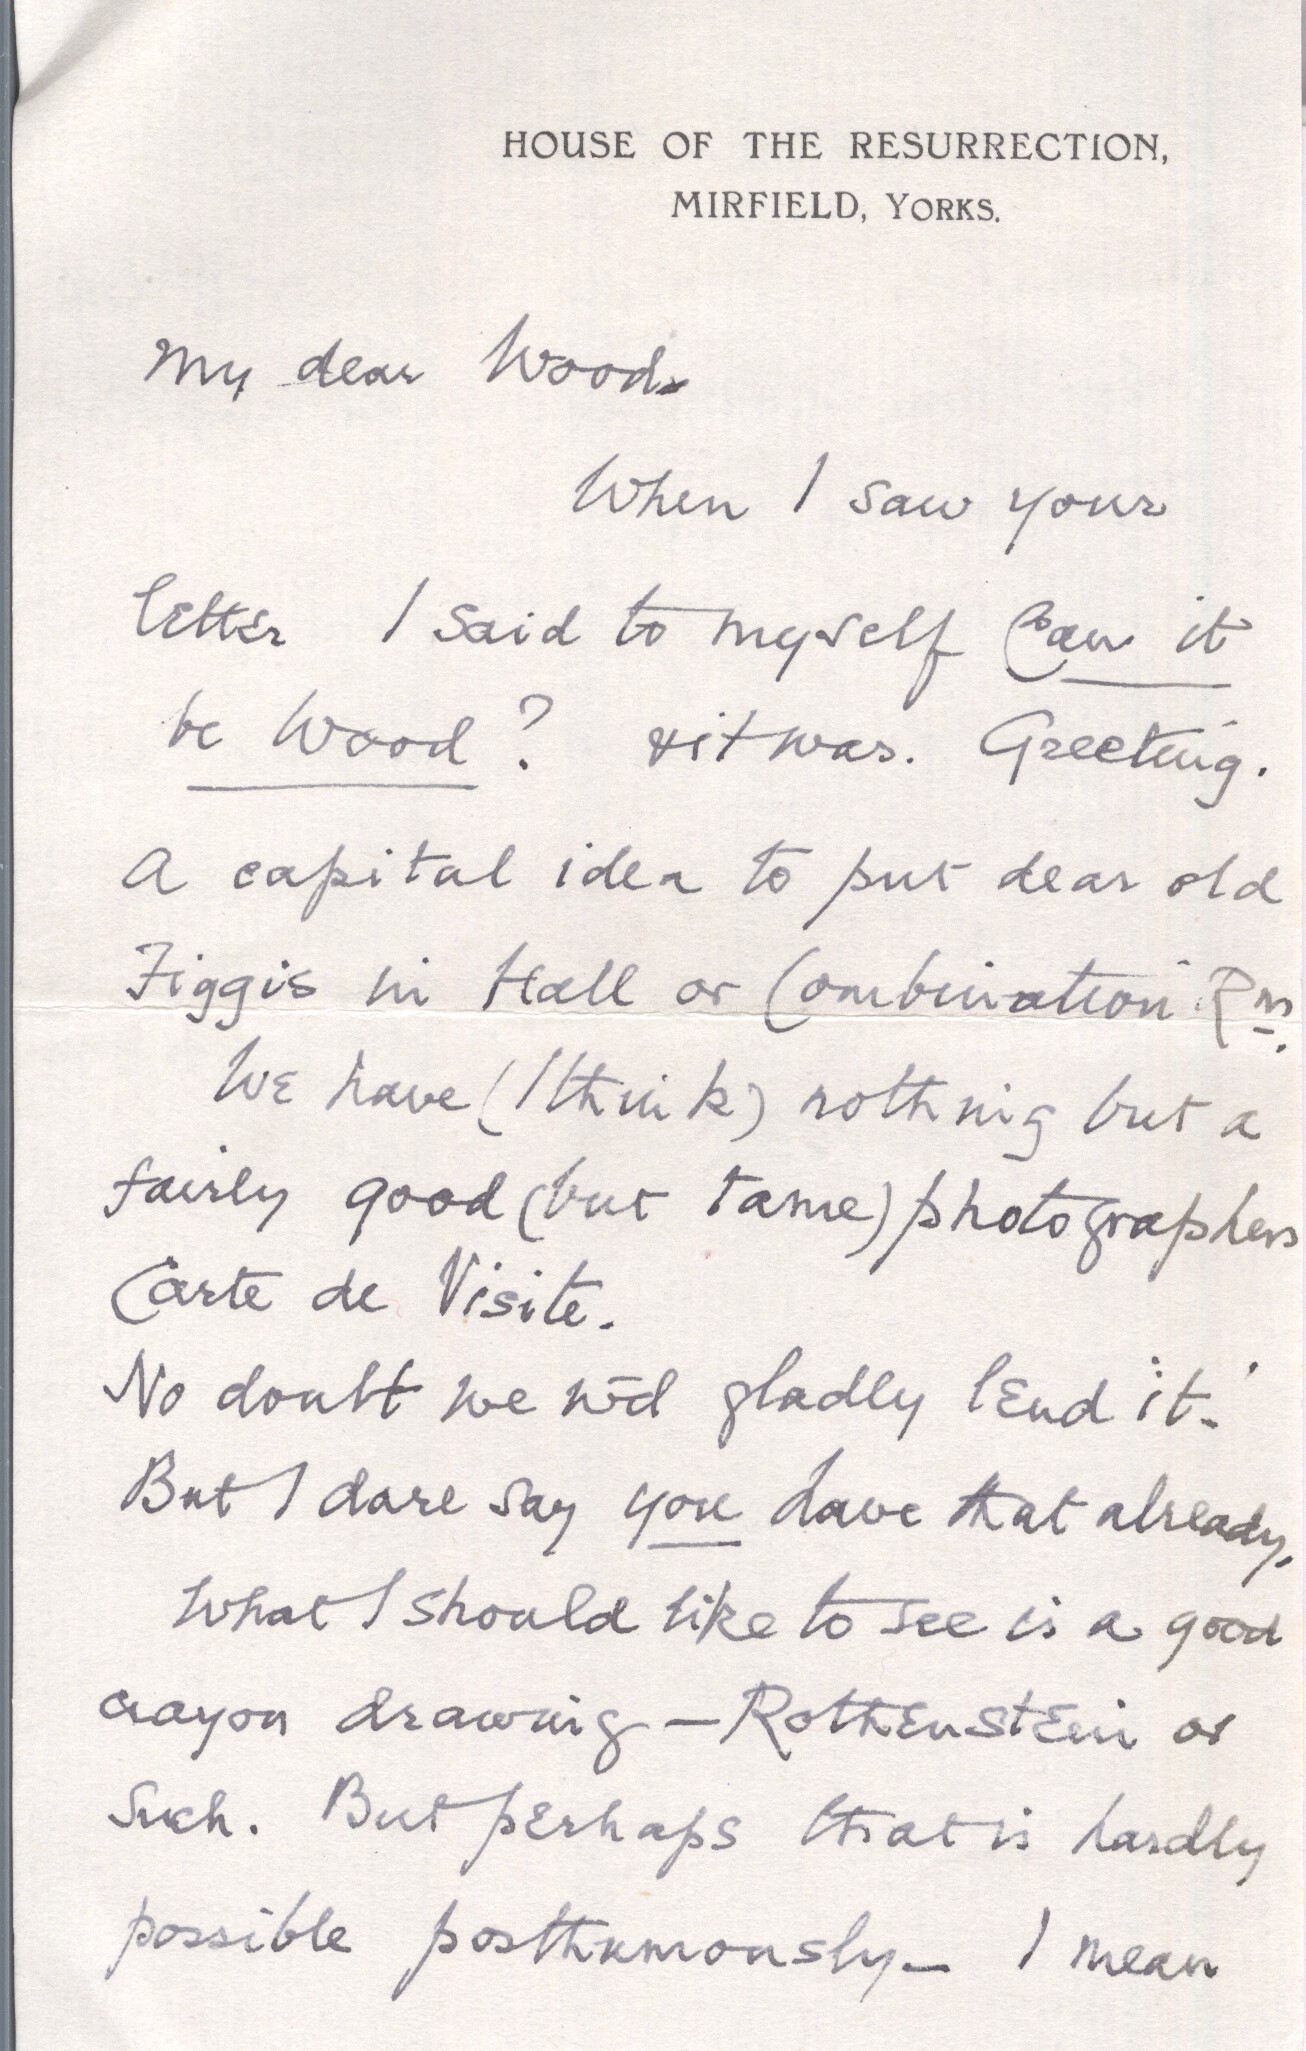 HOUSE OF THE RESURRECTION,
MIRFIELD, YORKS.
My dear Wood
When I saw your
letter I said to myself Can it
be Wood? & it was. Greeting.
A capital idea to put dear old
Figgis in Hall or Combination Rm.
We have (I think) nothing but a
fairly good (but tame) photographers
Carte de Visite.
No doubt we wd gladly lend it.
But I dare say you have that already.
What I should like to see is a good
crayon drawing — Rothenstein or
such. But perhaps that is hardly
possible posthumously — I mean